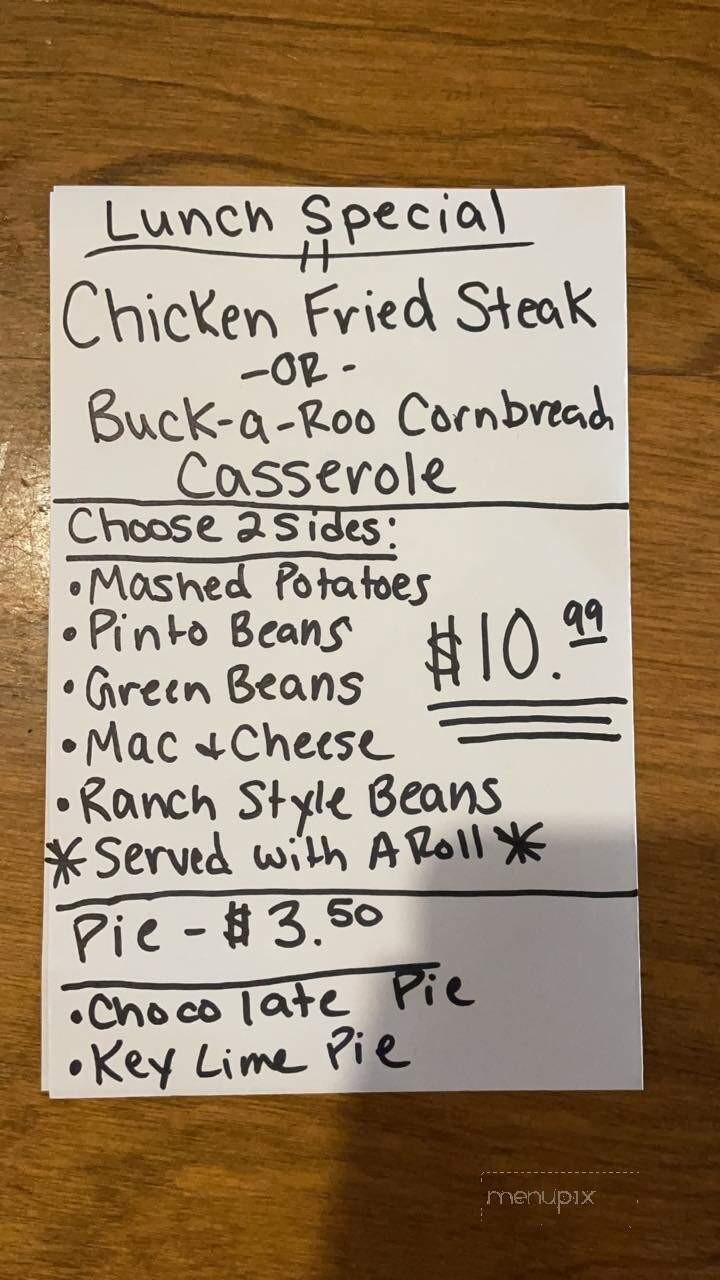 Lunch Special
Chicken Fried Steak
-OR-
Buck-a-Roo Cornbread
Casserole
Choose 2 Sides:
• Mashed Potatoes
• Pinto Beans
$10.99
• Green Beans
• Mac & Cheese
• Ranch Style Beans
* Served with A Roll *
Pie - $3.50
• Chocolate Pie
• Key Lime Pie
menupix